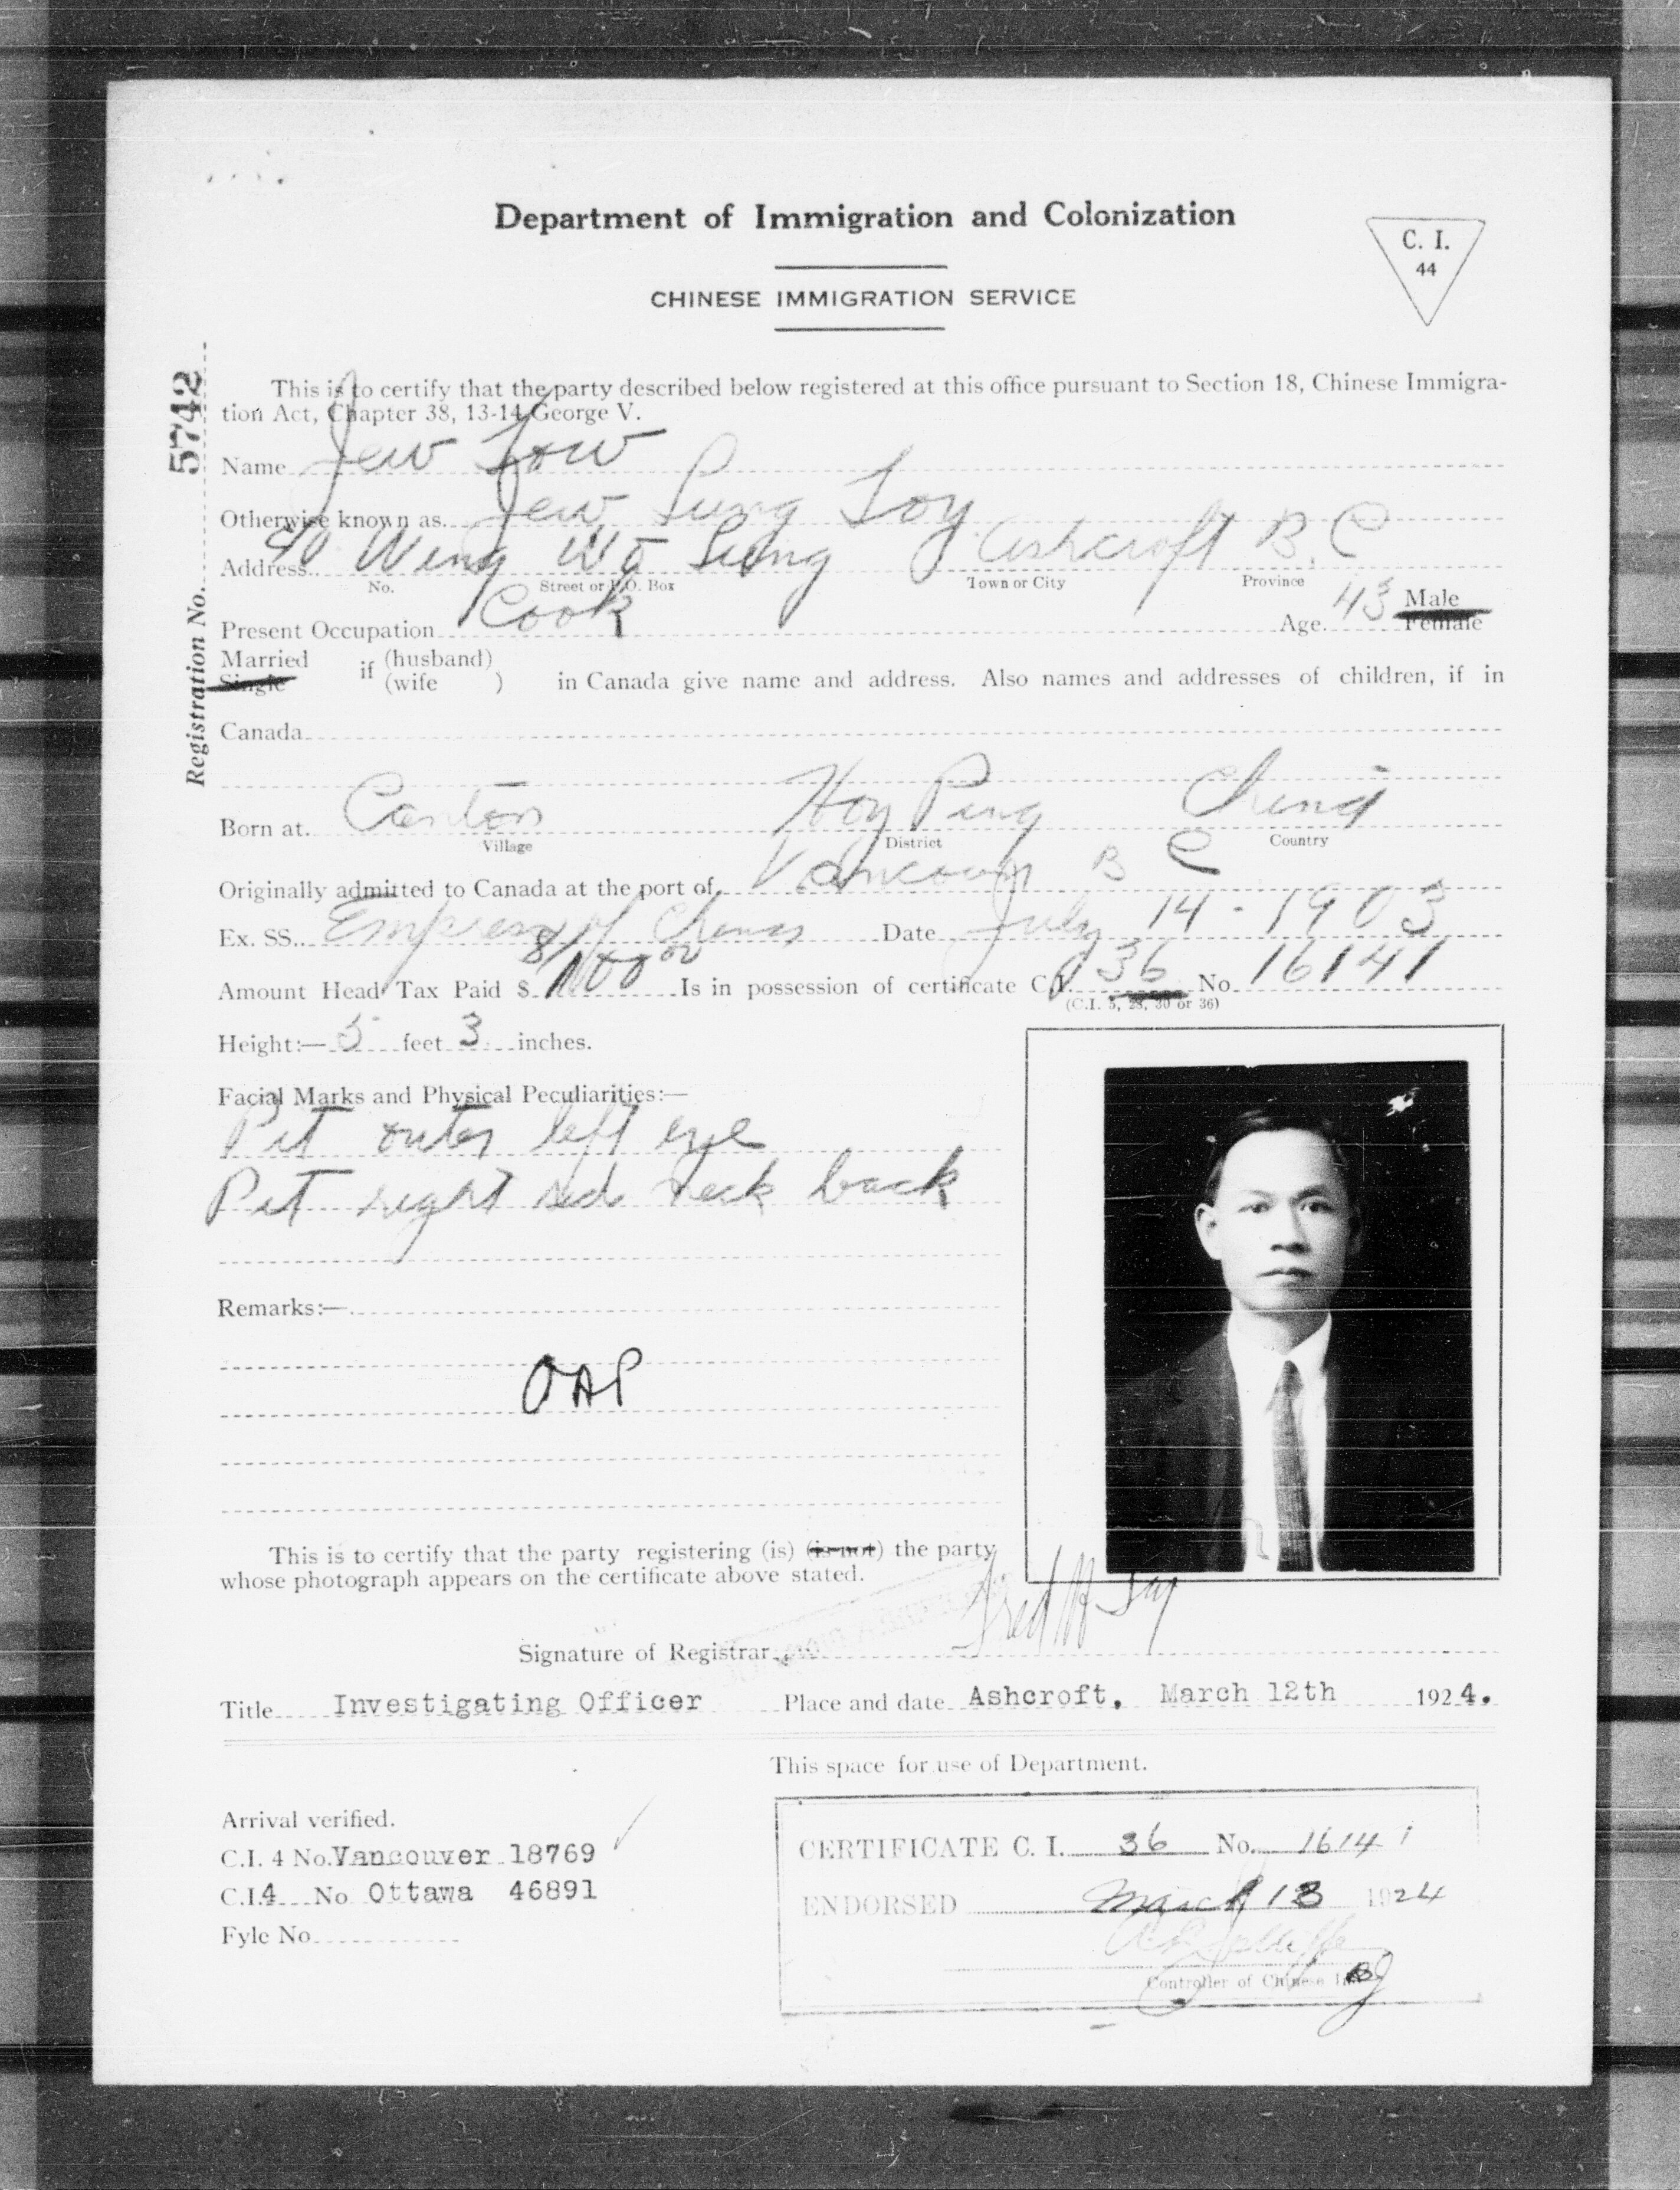 Department of Immigration and Colonization
C. I.
44
CHINESE IMMIGRATION SERVICE
Registration No. 5742
This is to certify that the party described below registered at this office pursuant to Section 18, Chinese Immigra-
tion Act, Chapter 38, 13-14 George V.
Name Jew Tow
Otherwise known as Jew Sung Toy
Address c/o Wing Wo Sung Ashcroft B.C
No. Street or P.O. Box Town or City Province
Present Occupation Cook Age 43 Male
Female
Married if (husband)
Single (wife ) in Canada give name and address. Also names and addresses of children, if in
Canada
Born at Canton Hoy Ping China
Village District Country
Originally admitted to Canada at the port of Vancouver B C
Ex. SS. Empress of China Date July 14 - 1903
Amount Head Tax Paid $ 100 00 Is in possession of certificate C.I. 36 No 16141
(C.I. 5, 28, 30 or 36)
Height:— 5 feet 3 inches.
Facial Marks and Physical Peculiarities:—
Pit outer left eye
Pit right side neck back
Remarks:—
OAP
This is to certify that the party registering (is) (is not) the party
whose photograph appears on the certificate above stated.
Signature of Registrar Fred W
Title Investigating Officer Place and date Ashcroft, March 12th 1924.
This space for use of Department.
Arrival verified.
C.I. 4 No. Vancouver 18769
C.I.4 No Ottawa 46891
Fyle No
CERTIFICATE C. I. 36 No. 16141
ENDORSED March 13 1924
Controller of Chinese